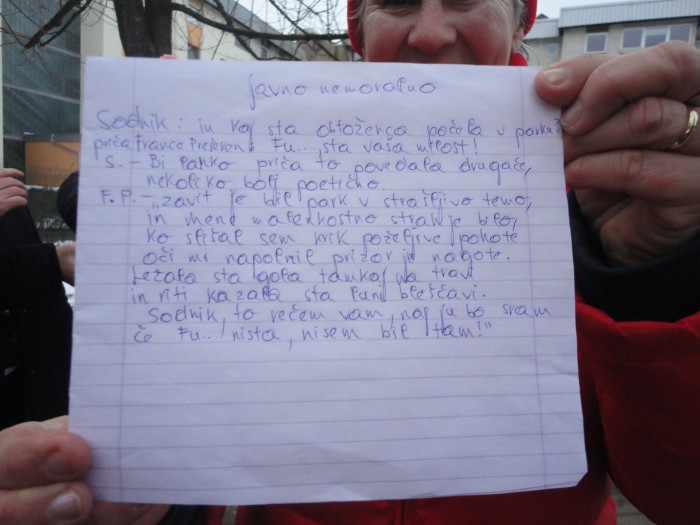 javno nemoralno
Sodnik: in kaj sta obtoženca počela v parku?
priča France Prešeren: Fu... sta vaša milost!
S. - Bi lahko priča to povedala drugače,
nekoliko bolj poetično.
F.P. - "Zavit je bil park v strašljivo temo,
in mene malenkostno strah je bilo,
ko slišal sem krik poželjive pohote
oči mi napolnil prizor je nagote.
Ležala sta gola tamkaj na travi
in riti kazala sta luni bleščavi.
Sodnik, to rečem vam, naj ju bo sram
če Fu.. nista, nisem bil tam!"